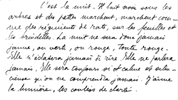 C'est la nuit. Il fait noir sous les
arbres et des pattes marchent, marchent comme
des ri de rats, sur les feuilles et
les brindilles. La nuit ne sera donc jamais
jaune, ou verte, ou rouge, toute rouge.
Elle n'éclatera jamais de rire. Elle ne parlera
jamais. Elle sera toujours si et cela
ceux qu'on ne comprendra jamais. J'aime
la lumière, les contes de clarté.